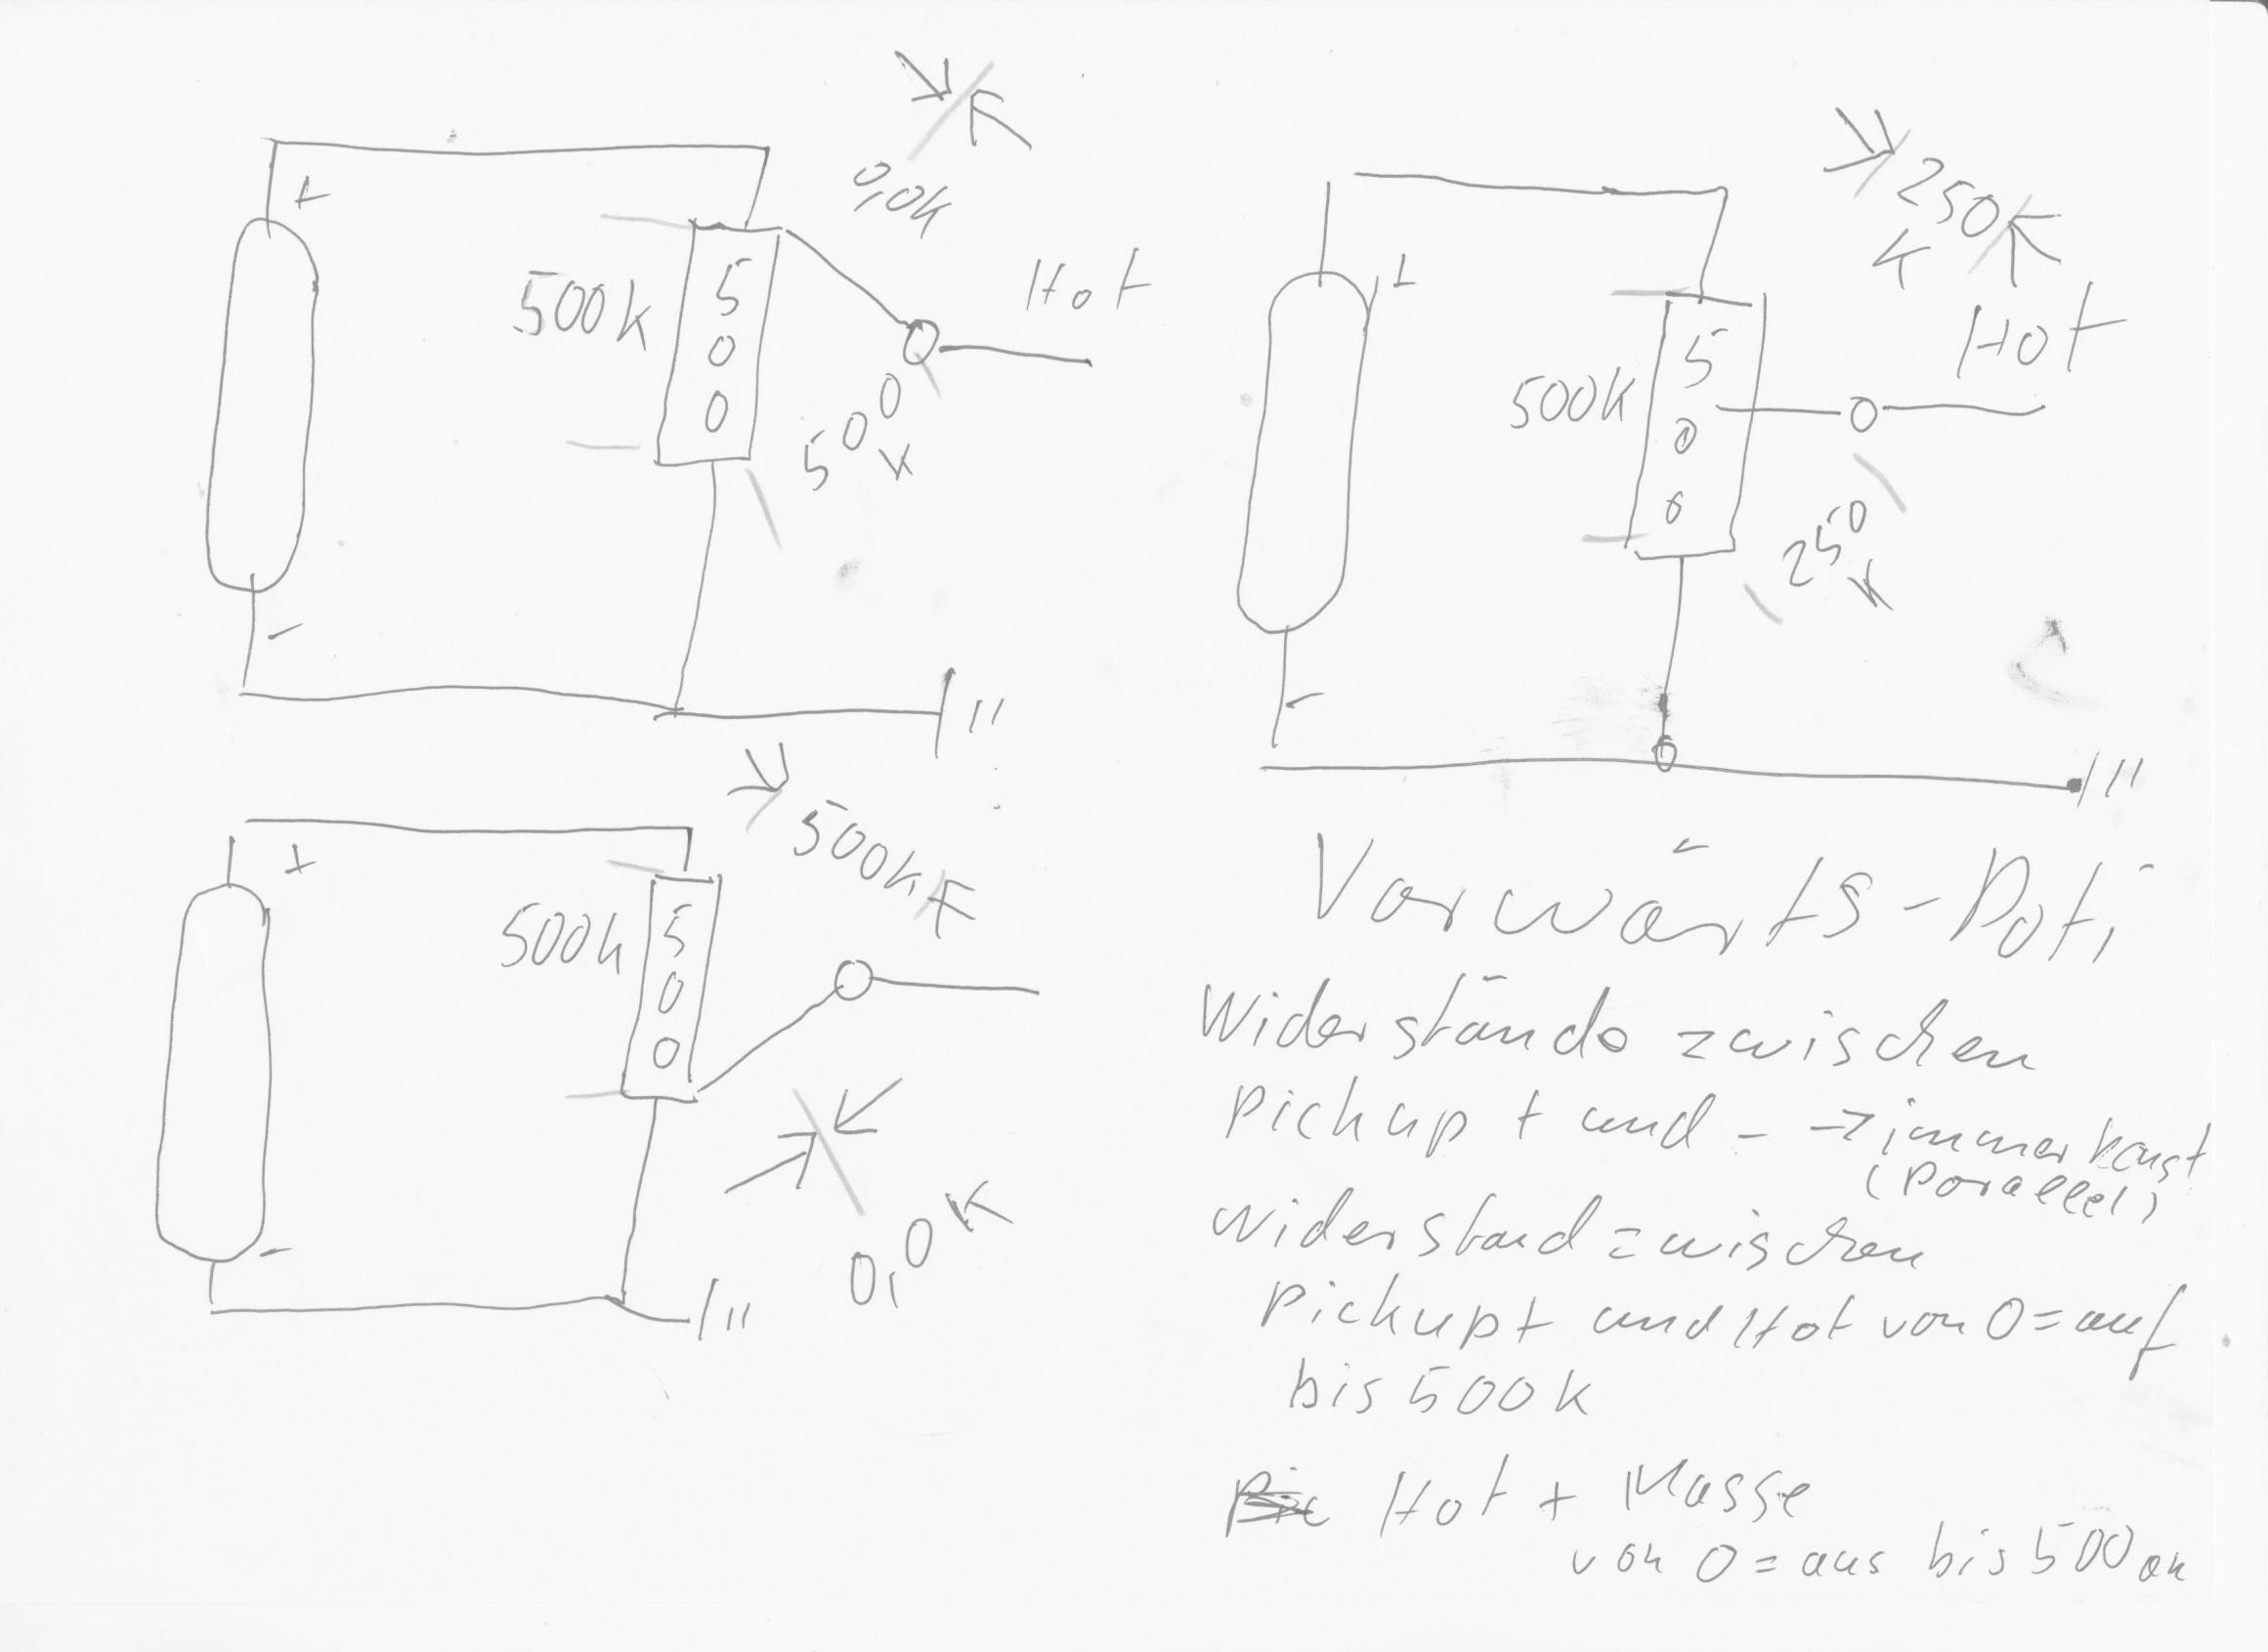 +
0,0k
500k
5
0
0
Hot
500
K
-
+
250
K
500k
5
0
0
Hot
250
K
-
+
500k
500k
5
0
0
0,0K
-
Vorwärts-Poti
Widerstände zwischen
Pickup + und - → immer konst
(Parallel)
Widerstand zwischen
Pickup + und Hot von 0 = auf
bis 500K
Hot + Masse
von 0 = aus bis 500 an